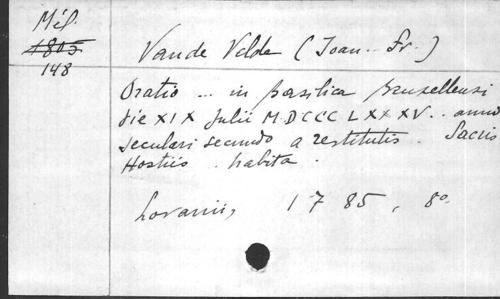 Mél.
1805
148
Van de Velde (Joan. Fr.)
Oratio ... in basilica bruxellensi
die XIX Julii MDCCCLXXXV .. anno
seculari secundo a restitutis. Sacris
Hostiis. habita.
Lovanii, 1785, 8o.